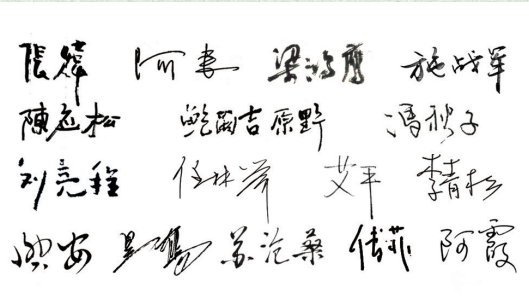 張煒 阿来 梁鸿鹰 施战军
陳应松 鲍尔吉原野 冯秋子
刘亮程 任林举 艾平 李青松
兴安 苏沧桑 傅菲 阿霞